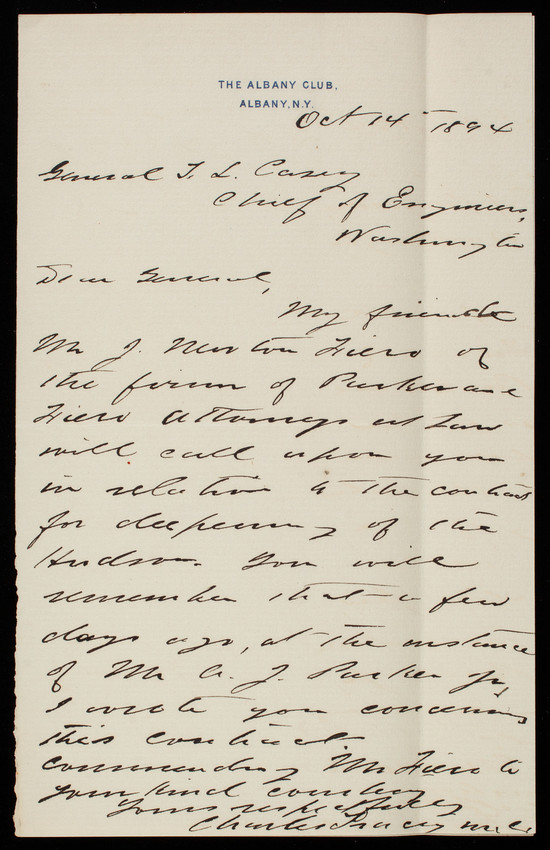 THE ALBANY CLUB,
ALBANY, N.Y.
Oct 14th 1894
General T. L. Casey
Chief of Engineers,
Washington
Dear General,
My friend
Mr J. Newton Fiero of
the firm of Parker and
Fiero Attorneys at Law
will call upon you
in relation to the contract
for deepening of the
Hudson. You will
remember that a few
days ago, at the instance
of Mr A. J. Parker Jr,
I wrote you concerning
this contract
commending Mr Fiero to
your kind courtesy
Yours respectfully
Charles Tracey M.C.